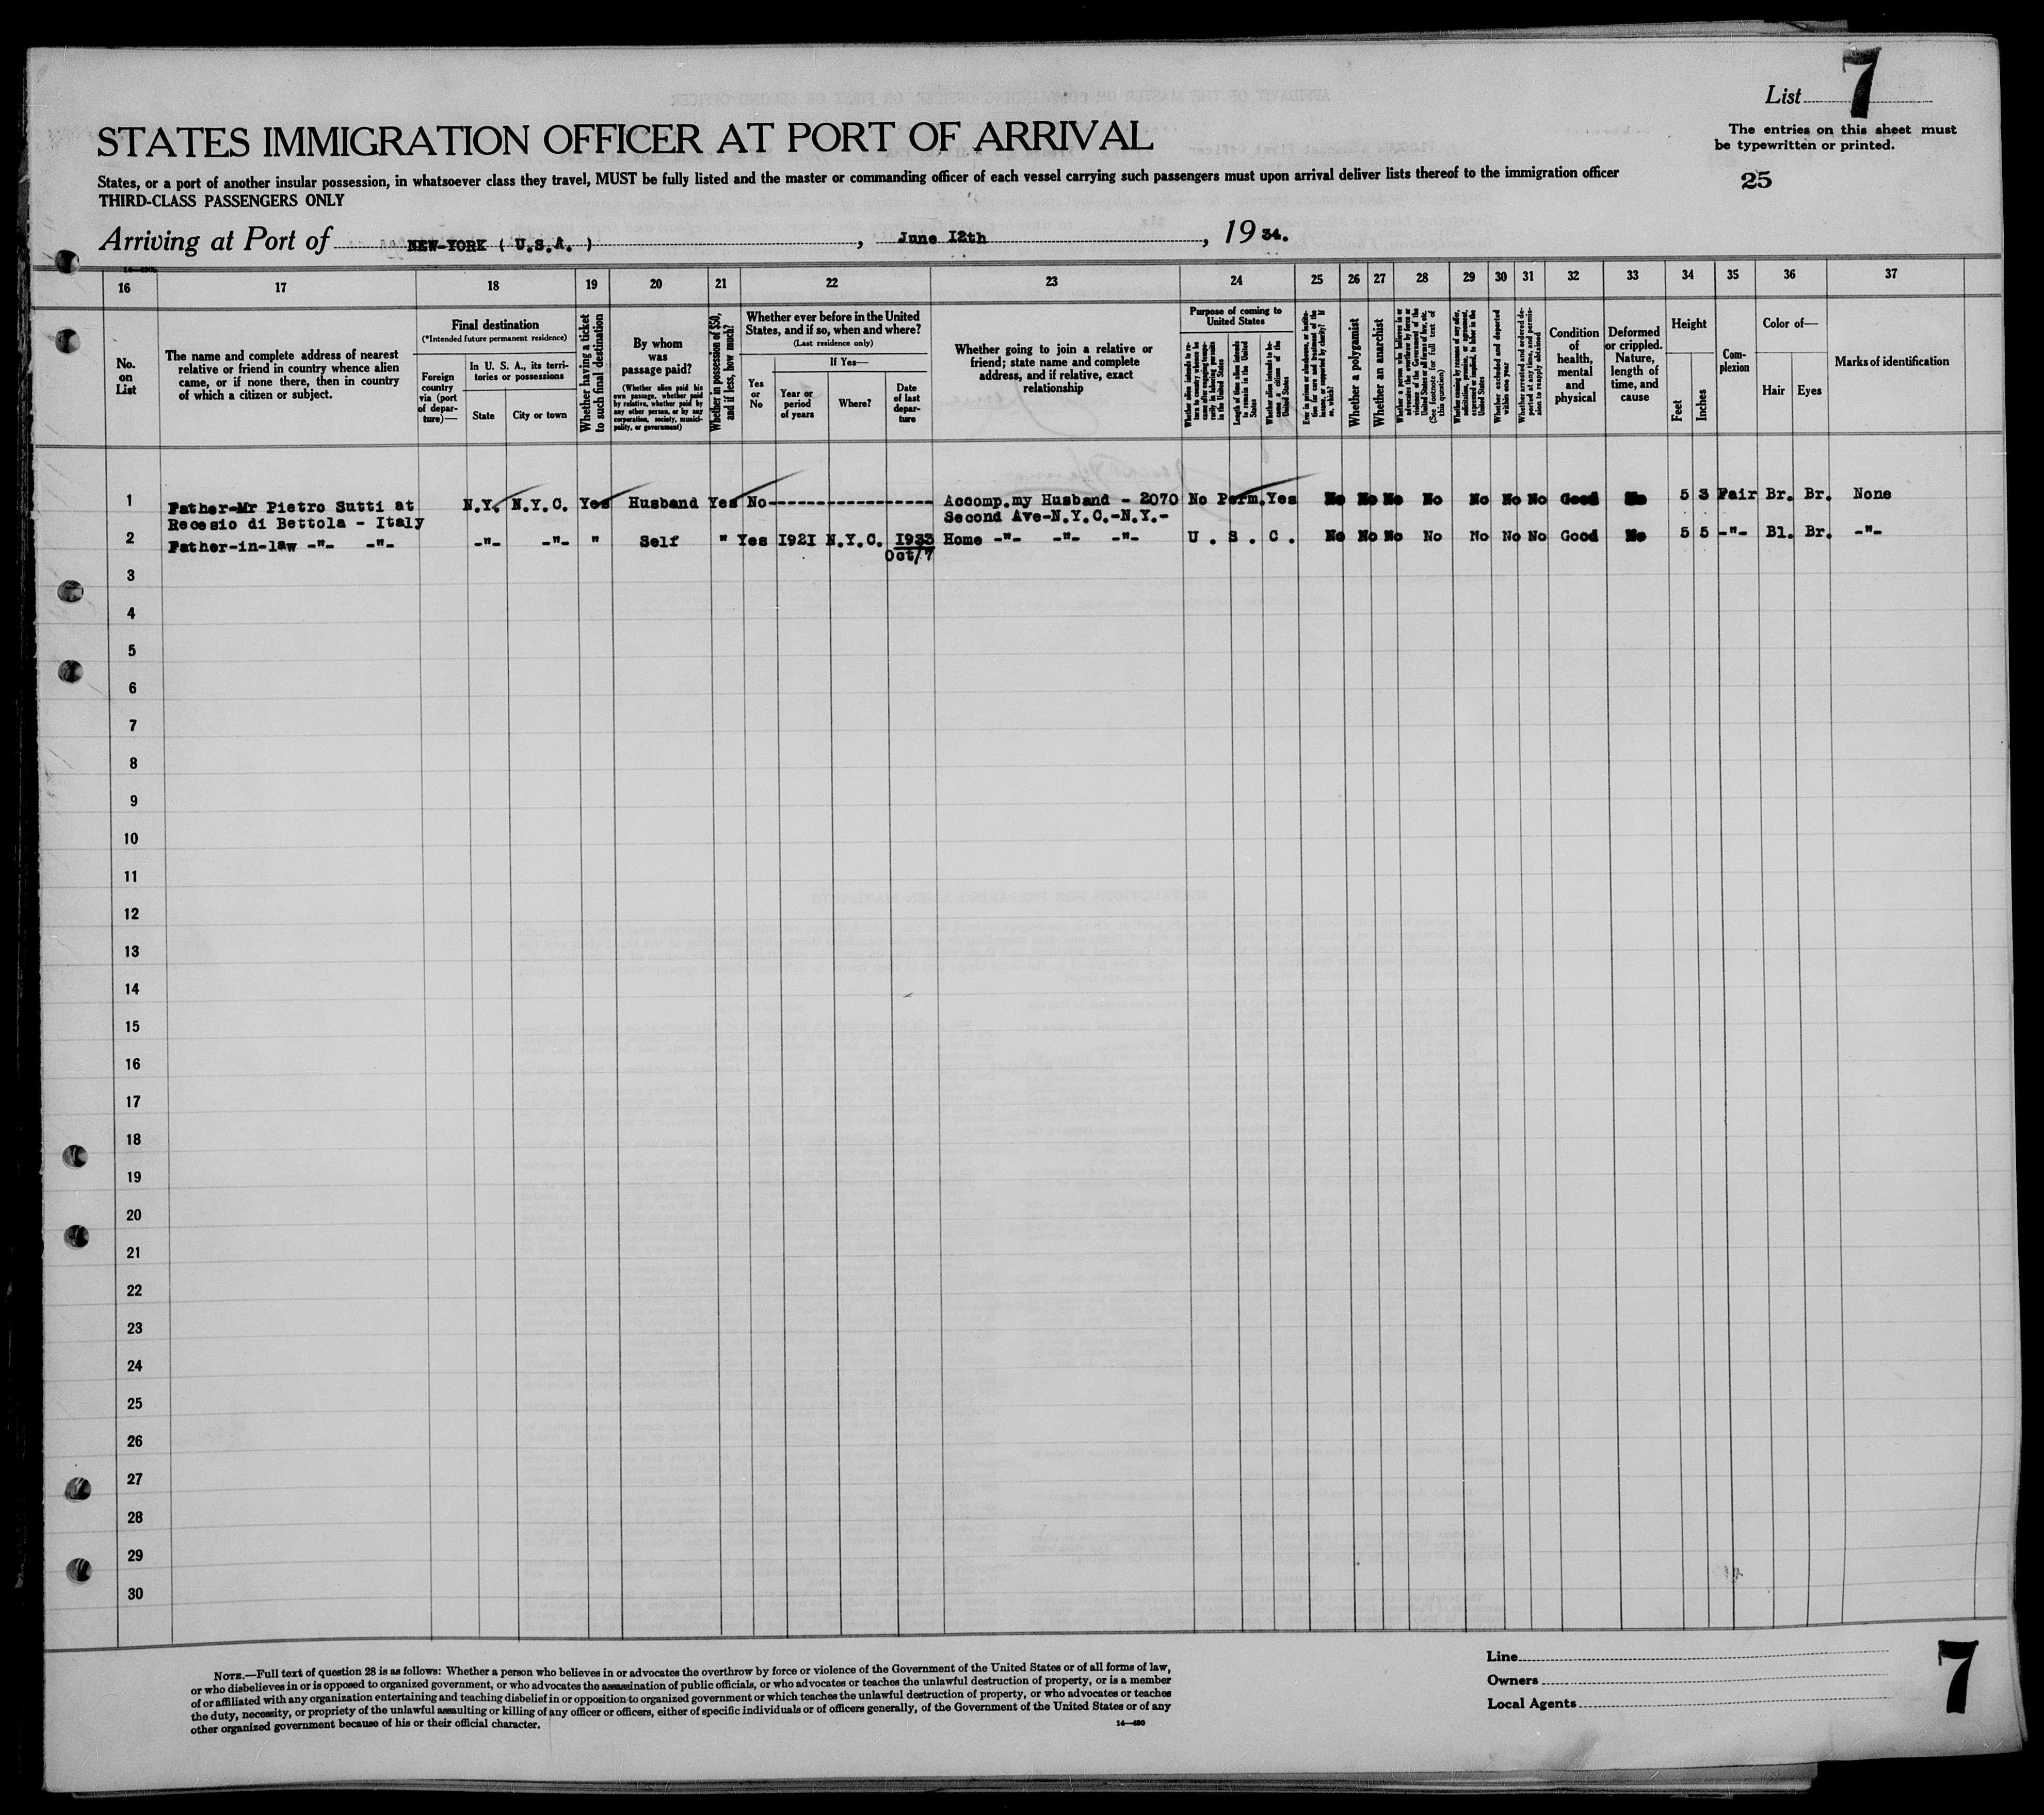 List 7
The entries on this sheet must
be typewritten or printed.
25
STATES IMMIGRATION OFFICER AT PORT OF ARRIVAL
States, or a port of another insular possession, in whatsoever class they travel, MUST be fully listed and the master or commanding officer of each vessel carrying such passengers must upon arrival deliver lists thereof to the immigration officer
THIRD-CLASS PASSENGERS ONLY
Arriving at Port of NEW-YORK ( U.S.A. ), June I2th, 19 34.
16 17 18 19 20 21 22 23 24 25 26 27 28 29 30 31 32 33 34 35 36 37
No.
on
List
The name and complete address of nearest
relative or friend in country whence alien
came, or if none there, then in country
of which a citizen or subject.
Final destination
(*Intended future permanent residence)
Foreign
country
via (port
of depar-
ture)—
In U. S. A., its terri-
tories or possessions
State
City or town
Whether having a ticket
to such final destination
By whom
was
passage paid?
(Whether alien paid his
own passage, whether paid
by relative, whether paid by
any other person, or by any
corporation, society, munici-
pality, or government)
Whether in possession of $50,
and if less, how much?
Whether ever before in the United
States, and if so, when and where?
(Last residence only)
Yes
or
No
If Yes—
Year or
period
of years
Where?
Date
of last
depar-
ture
Whether going to join a relative or
friend; state name and complete
address, and if relative, exact
relationship
Purpose of coming to
United States
Whether alien intends to re-
turn to country whence he
came after engaging tempo-
rarily in laboring pursuits
in the United States
Length of time alien intends
to remain in the United
States
Whether alien intends to be-
come a citizen of the
United States
Ever in prison or almshouse, or institu-
tion for care and treatment of the
insane, or supported by charity? If
so, which?
Whether a polygamist
Whether an anarchist
Whether a person who believes in or
advocates the overthrow by force or
violence of the Government of the
United States or all forms of law, etc.
(See footnote for full text of
this question)
Whether coming by reason of any offer,
solicitation, promise, or agreement,
expressed or implied, to labor in the
United States
Whether excluded and deported
within one year
Whether arrested and ordered de-
ported at any time, and permis-
sion to reapply obtained
Condition
of
health,
mental
and
physical
Deformed
or crippled.
Nature,
length of
time, and
cause
Height
Feet
Inches
Com-
plexion
Color of—
Hair
Eyes
Marks of identification
1 Father-Mr Pietro Sutti at N.Y. N.Y.C. Yes Husband Yes No----------------- Accomp.my Husband - 2070 No Perm. Yes No No No No No No No Good No 5 3 Fair Br. Br. None
Recesio di Bettola - Italy Second Ave-N.Y.C.-N.Y.-
2 Father-in-law -"- -"- -"- -"- " Self " Yes I92I N.Y.C. I933 Home -"- -"- -"- U . S . C . No No No No No No No Good No 5 5 -"- Bl. Br. -"-
Oct/7
3
4
5
6
7
8
9
10
11
12
13
14
15
16
17
18
19
20
21
22
23
24
25
26
27
28
29
30
NOTE.—Full text of question 28 is as follows: Whether a person who believes in or advocates the overthrow by force or violence of the Government of the United States or of all forms of law,
or who disbelieves in or is opposed to organized government, or who advocates the assassination of public officials, or who advocates or teaches the unlawful destruction of property, or is a member
of or affiliated with any organization entertaining and teaching disbelief in or opposition to organized government or which teaches the unlawful destruction of property, or who advocates or teaches
the duty, necessity, or propriety of the unlawful assaulting or killing of any officer or officers, either of specific individuals or of officers generally, of the Government of the United States or of any
other organized government because of his or their official character.
14—430
Line
Owners
Local Agents
7